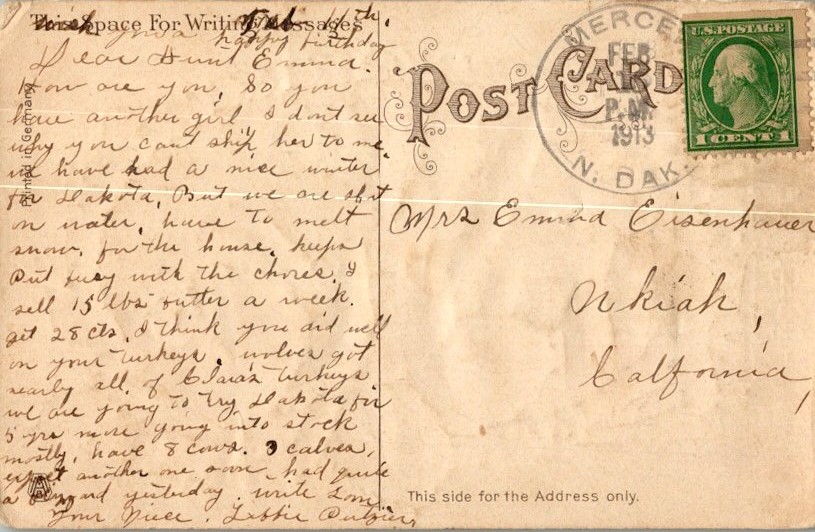 This Space For Writing Messages
Feb 11th,
happy birthday
Dear Aunt Emma.
How are you, So you
have another girl I dont see
why you cant ship her to me
we have had a nice winter
for Dakota, But we are short
on water, have to melt
snow. for the house, keeps
Put busy with the chores. I
sell 15 lbs butter a week.
get 28 cts. I think you did well
on your turkeys. wolves got
nearly all of Clara's turkeys
we are going to try Dakota for
5 yrs more going into stock
mostly, have 8 cows. 3 calves,
expect another one soon. had quite
a yesterday. write soon
Your Niece. Libbie
Printed in Germany
POST CARD
MERCE
FEB
P.M.
1913
N. DAK.
U.S. POSTAGE
1 CENT 1
Mrs Emma Eisenhauer
Ukiah,
Calfornia,
This side for the Address only.